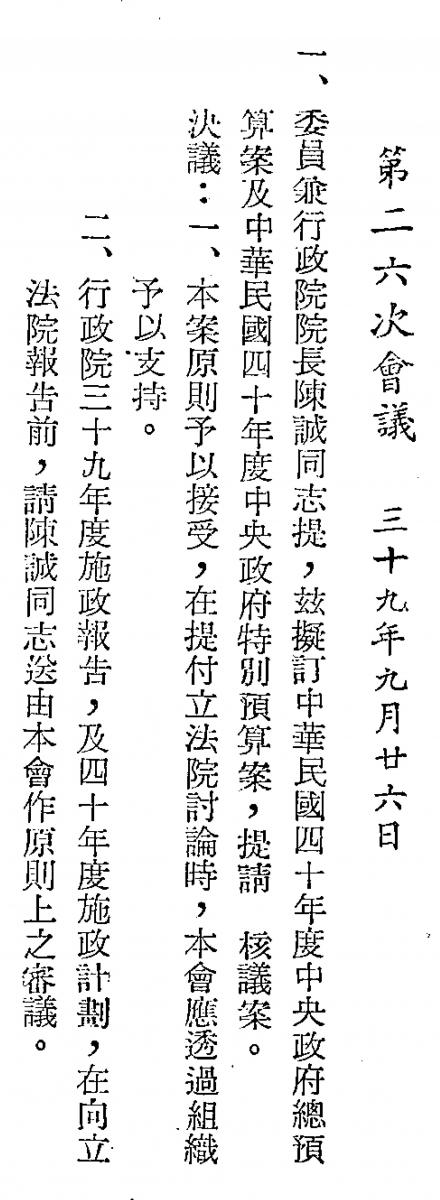 第二六次會議　三十九年九月廿六日
一、委員兼行政院院長陳誠同志提，茲擬訂中華民國四十年度中央政府總預
算案及中華民國四十年度中央政府特別預算案，提請　核議案。
決議：一、本案原則予以接受，在提付立法院討論時，本會應透過組織
予以支持。
二、行政院三十九年度施政報告，及四十年度施政計劃，在向立
法院報告前，請陳誠同志送由本會作原則上之審議。